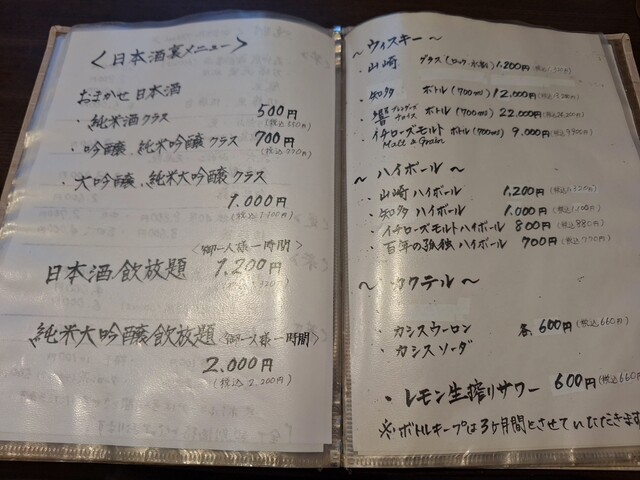 <日本酒裏メニュー>
おまかせ日本酒
・純米酒クラス 500円
(税込550円)
・吟醸、純米吟醸クラス 700円
(税込770円)
・大吟醸、純米大吟醸クラス
1,000円
(税込1,100円)
<御一人様一時間>
日本酒飲放題 1,200円
純米大吟醸飲放題<御一人様一時間>
2,000円
(税込2,200円)
～ウィスキー～
・山崎 グラス(ロック、水割) 1,200円
・知多 ボトル(700ml) 12,000円
ブレンダーズチョイス ボトル(700ml) 22,000円
・イチローズモルト ボトル(700ml) 9,000円(税込9,900円)
Malt & Grain
～ハイボール～
・山崎ハイボール 1,200円
・知多ハイボール 1,000円(税込1,100円)
・イチローズモルトハイボール 800円(税込880円)
・百年の孤独ハイボール 700円(税込770円)
～カクテル～
・カシスウーロン 各、600円(税込660円)
・カシスソーダ
・レモン生搾りサワー 600円(税込660円
※ボトルキープは3ヶ月間とさせていただきます